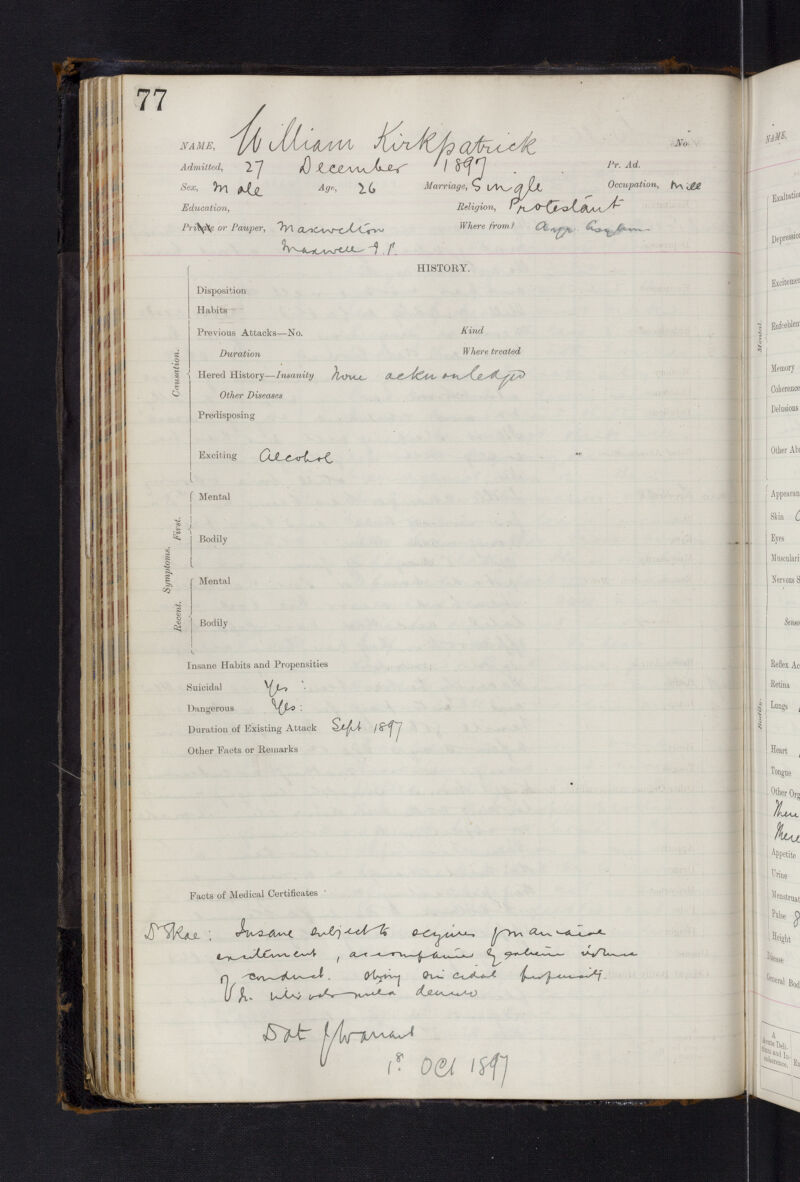 77
NAME, William Kirkpatrick No.
Admitted, 27 December 1897 Pr. Ad.
Sex, Male Age, 26 Marriage, Single Occupation, Mill
Education, Religion, Protestant
Private or Pauper, Maxwelltown Where from? Ayr Asylum
Maxwell I.P.
HISTORY.
Causation.
Disposition
Habits
Previous Attacks—No. Kind
Duration Where treated
Hered History—Insanity None acknowledged
Other Diseases
Predisposing
Exciting Alcohol
Symptoms.
First.
Mental
Bodily
Recent.
Mental
Bodily
Insane Habits and Propensities
Suicidal Yes
Dangerous Yes:
Duration of Existing Attack Sept 1897
Other Facts or Remarks
Facts of Medical Certificates
Dr Skae: Insane subject to maniacal
excitement, accompanied by violence
of conduct. suicidal propensity.
Warrant
18 Oct 1897
NAME,
Mental.
Exaltation
Depression
Excitement
Memory
Coherence
Delusions
Other
Skin
Eyes
Reflex Ac
Retina
Lungs
Bodily.
Heart
Tongue
Other Org
There
There
Appetite
Urine
Menstruat
Pulse
Height
Disease
General Bod